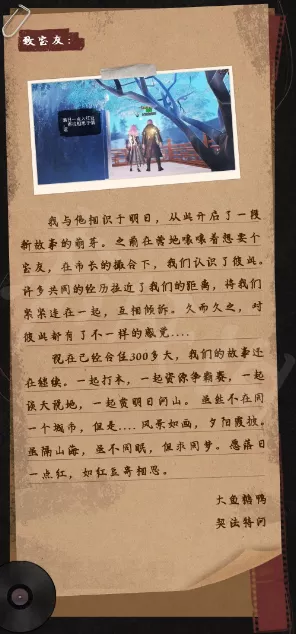 致宝友:
我与他相识于明日，从此开启了一段
新故事的萌芽。之前在营地嚷嚷着想要个
宝友，在市长的撮合下，我们认识了彼此。
许多共同的经历拉近了我们的距离，将我们
紧紧连在一起，互相倾诉。久而久之，对
彼此都有了不一样的感觉....
现在已经合住300多天，我们的故事还
在继续。一起打本，一起资源争霸赛，一起
谈天说地，一起赏明日河山。虽然不在同
一个城市，但是....风景如画，夕阳霞披。
虽隔山海，虽不同眠，但求同梦。愿落日
一点红，如红豆寄相思。
大鱼鹅鸭
契法特问